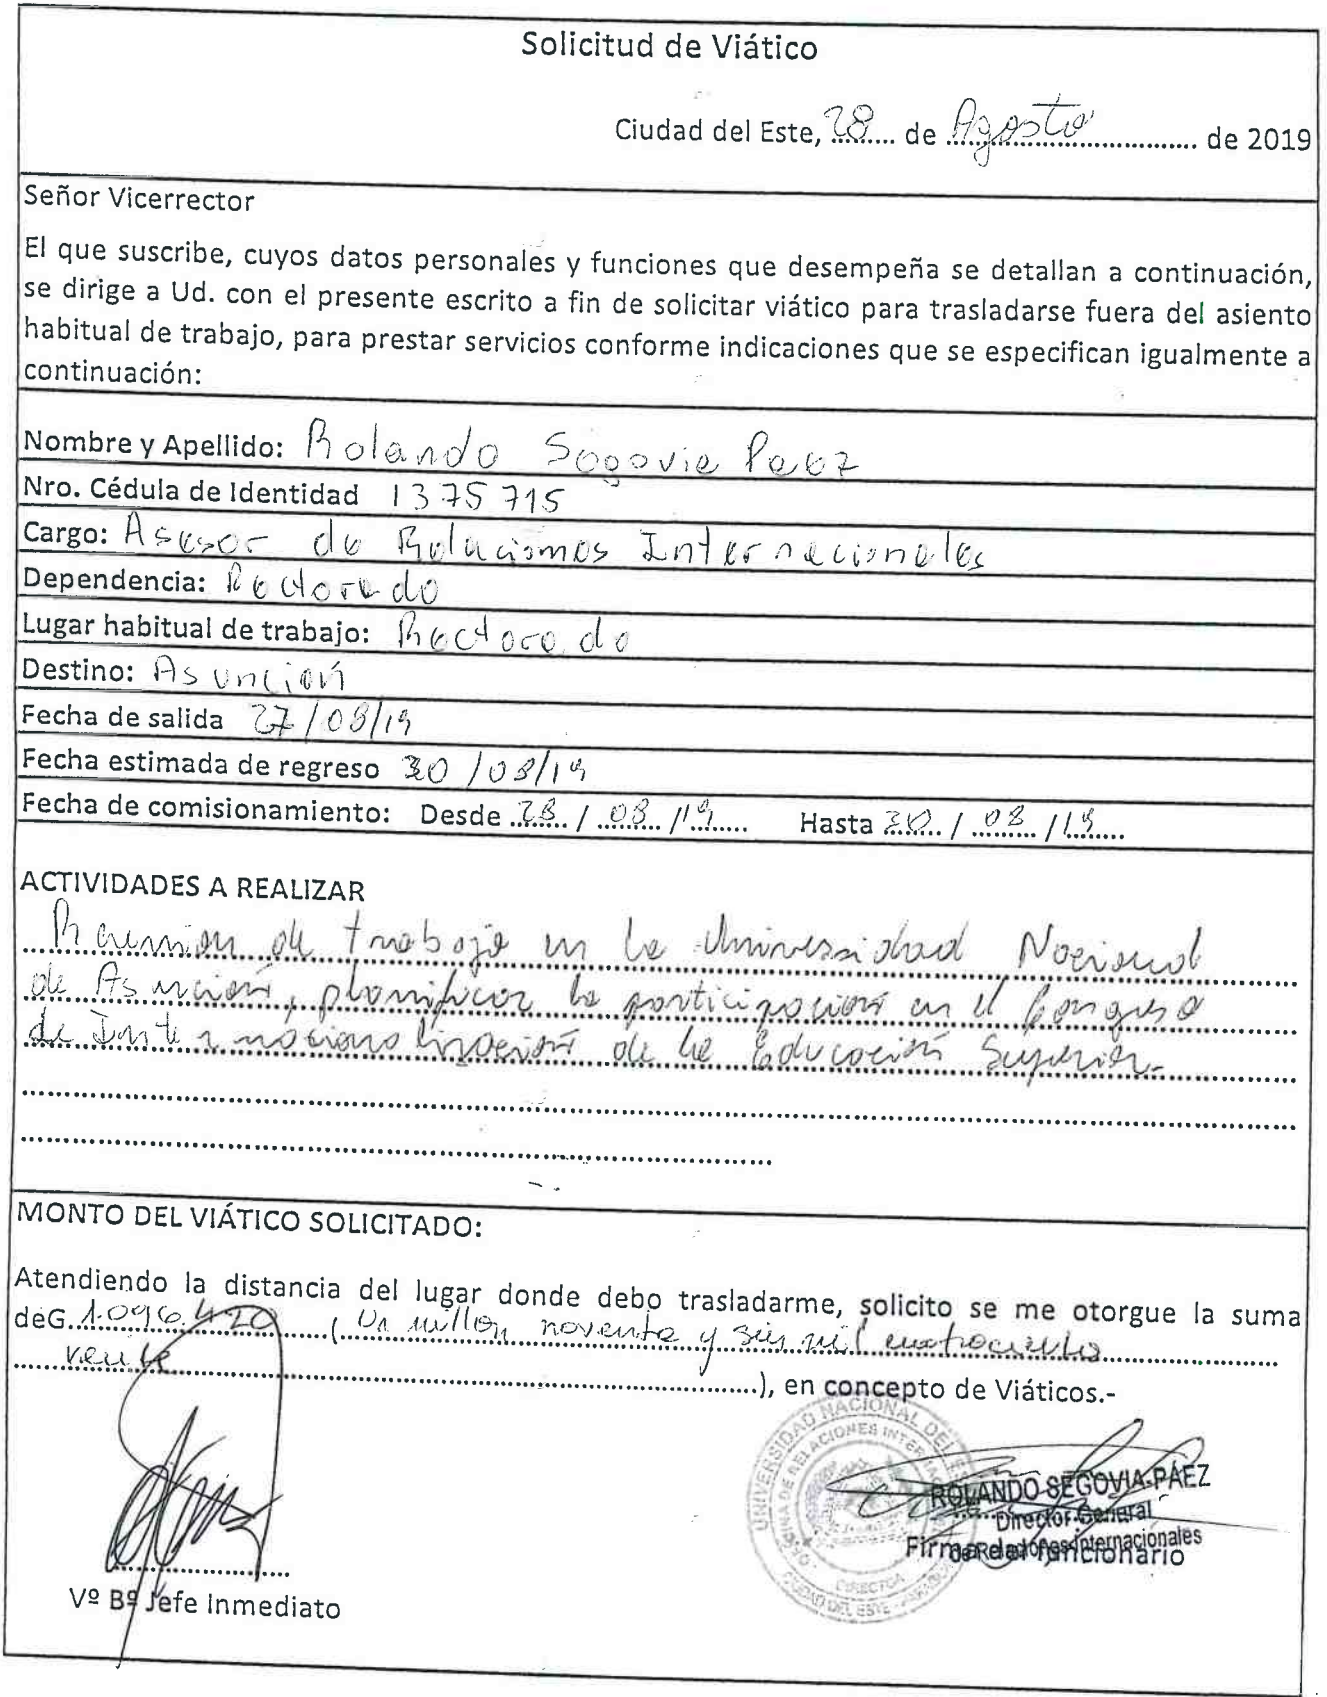 Solicitud de Viático
Ciudad del Este, 28 de Agosto de 2019
Señor Vicerrector
El que suscribe, cuyos datos personales y funciones que desempeña se detallan a continuación,
se dirige a Ud. con el presente escrito a fin de solicitar viático para trasladarse fuera del asiento
habitual de trabajo, para prestar servicios conforme indicaciones que se especifican igualmente a
continuación:
Nombre y Apellido: Rolando Segovia Paez
Nro. Cédula de Identidad 1375715
Cargo: Asesor de Relaciones Internacionales
Dependencia: Rectorado
Lugar habitual de trabajo: Rectorado
Destino: Asunción
Fecha de salida 27/08/19
Fecha estimada de regreso 30/08/19
Fecha de comisionamiento: Desde 28 / 08 /19 Hasta 30 / 08 /19
ACTIVIDADES A REALIZAR
Reunion de trabajo en la Universidad Nacional
de Asunción, planificar la participación en el Congreso
de Internacionalización de la Educación Superior.-
MONTO DEL VIÁTICO SOLICITADO:
Atendiendo la distancia del lugar donde debo trasladarme, solicito se me otorgue la suma
deG. 1.096.420 (Un millon noventa y seis mil cuatrociento
veinte
), en concepto de Viáticos.-
UNIVERSIDAD NACIONAL DEL ESTE
RELACIONES INTER
DIRECTOR
CIUDAD DEL ESTE
ROLANDO SEGOVIA PÁEZ
Director General
de Relaciones Internacionales
Firma del funcionario
Vº Bº Jefe Inmediato